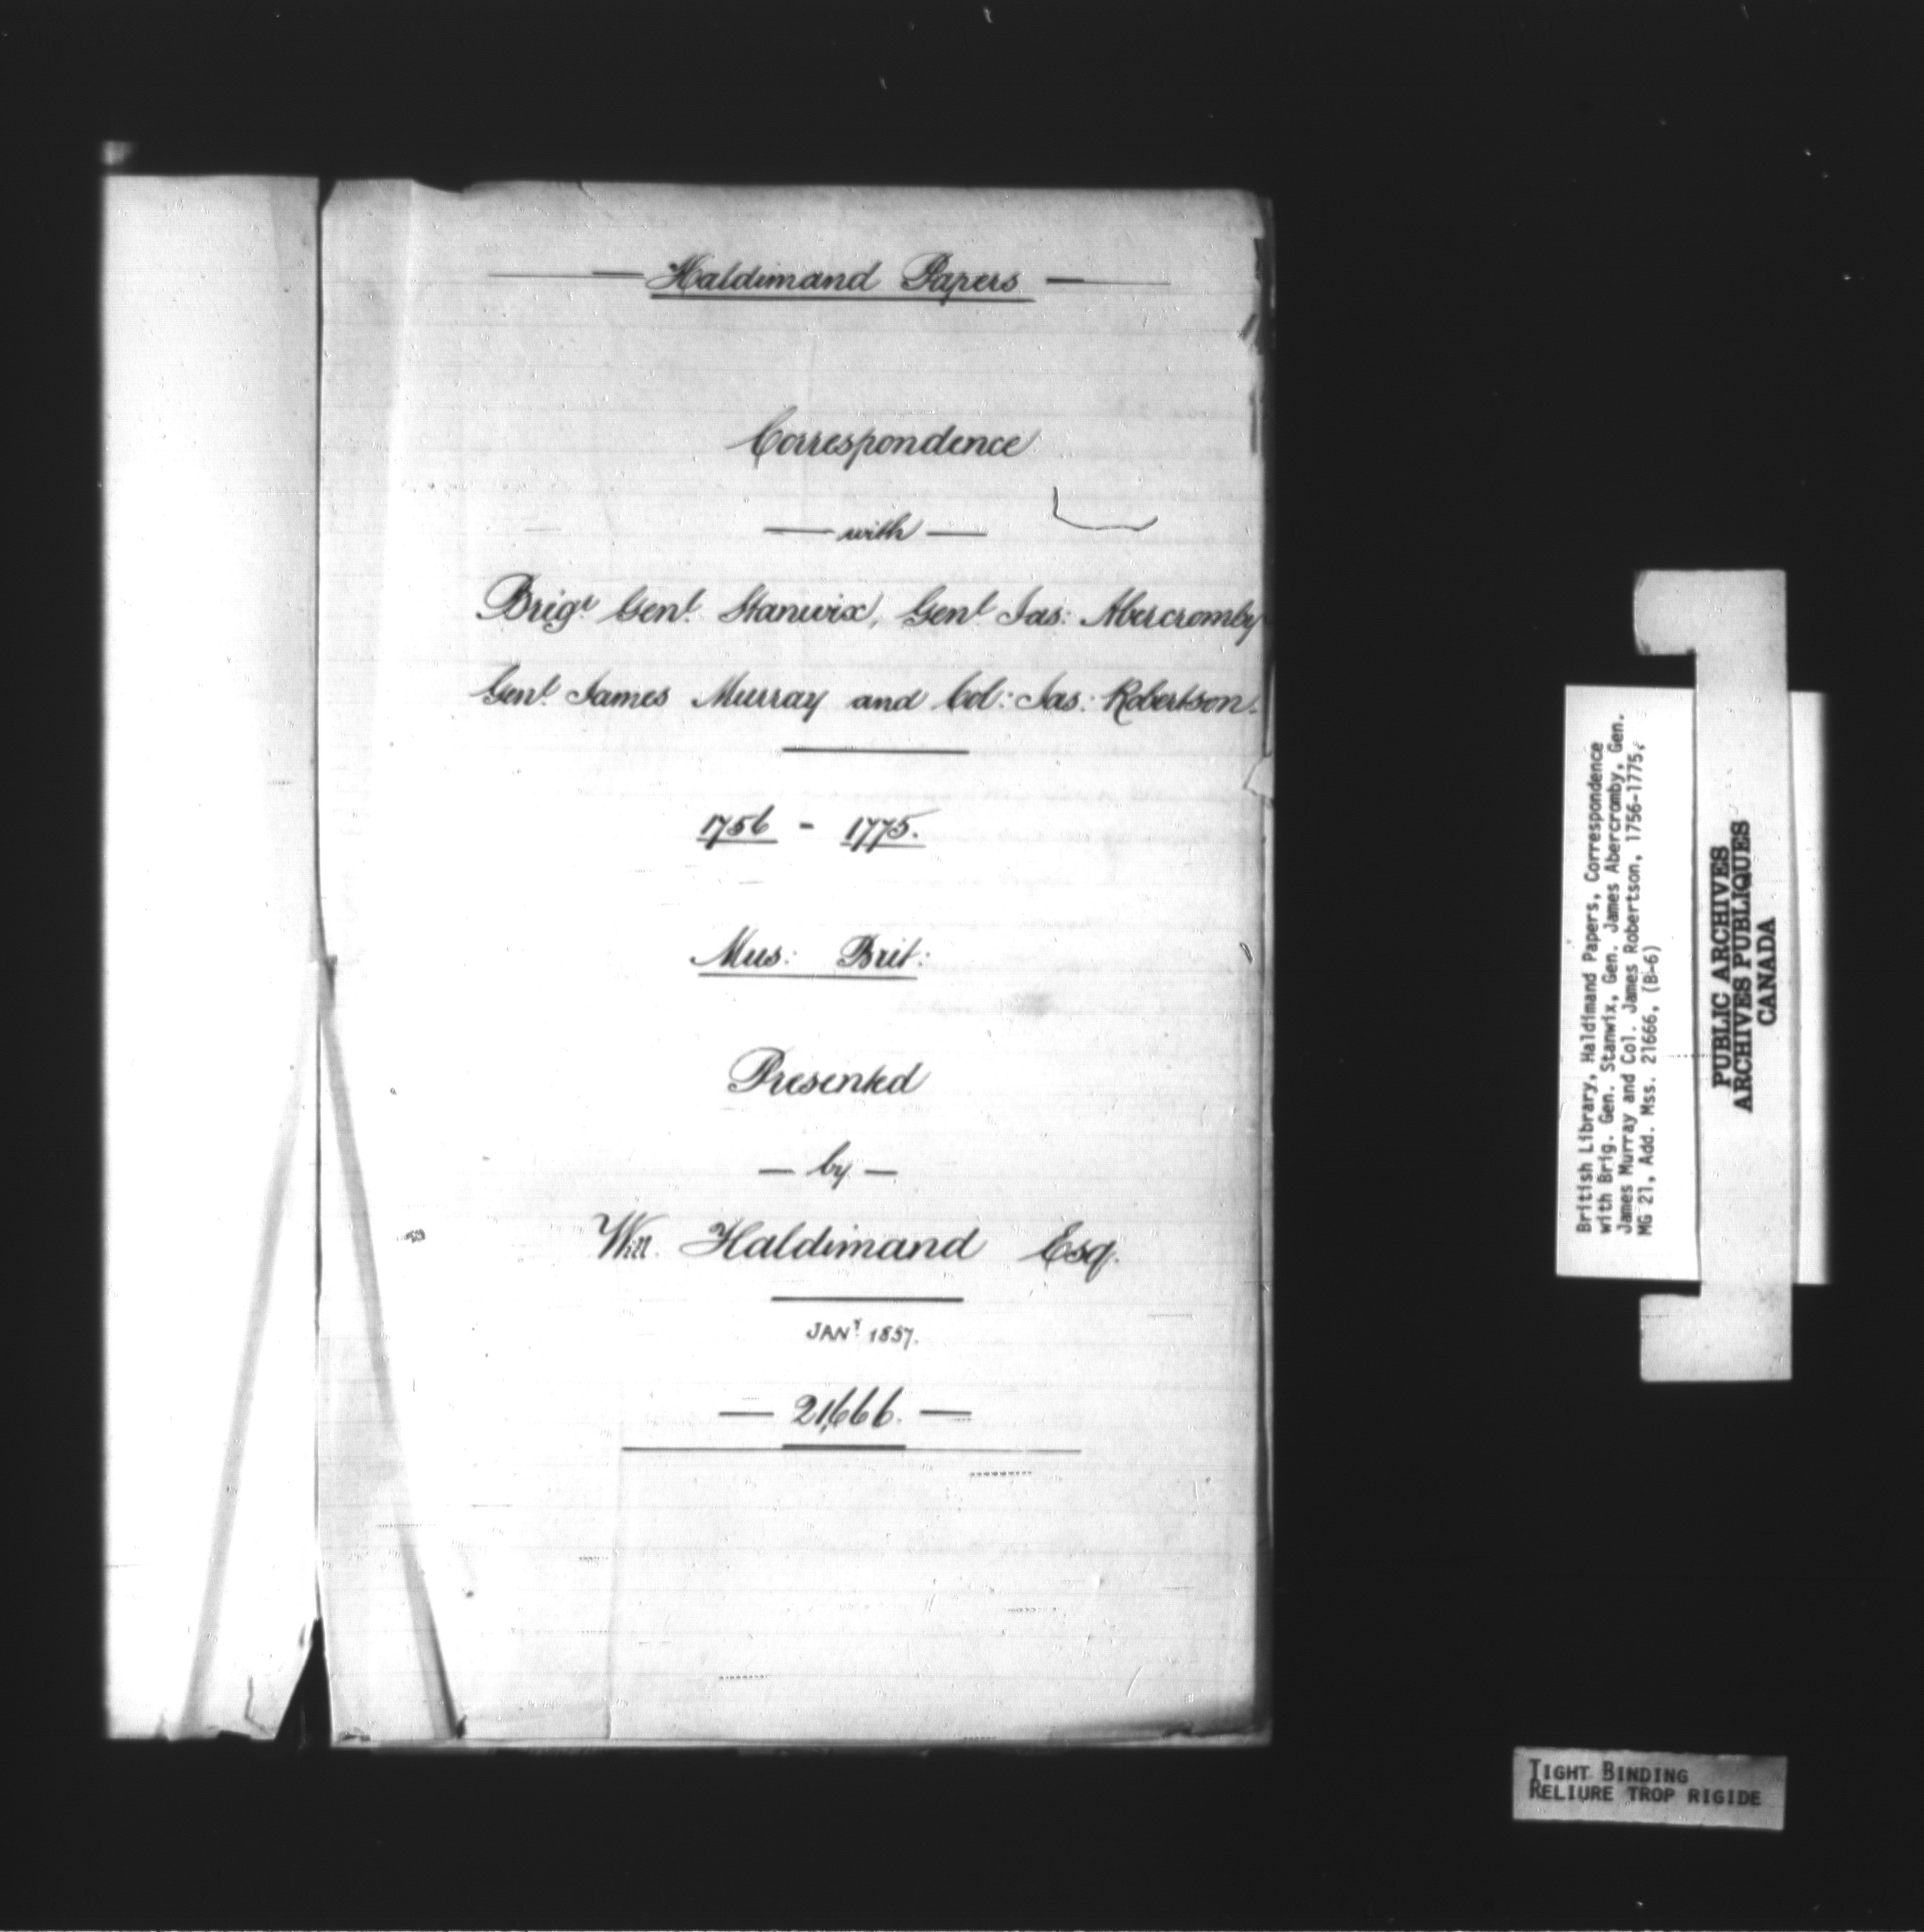 Haldimand Papers
Correspondence
with
Brigr Genl. Stanwix, Genl Jas: Abercromby
Genl. James Murray and Col: Jas: Robertson.
1756 - 1775.
Mus: Brit:
Presented
by
Will. Haldimand Esq.
JANY. 1857.
21,666.
British Library, Haldimand Papers, Correspondence
with Brig. Gen. Stanwix, Gen. James Abercromby, Gen.
James Murray and Col. James Robertson, 1756-1775,
MG 21, Add. Mss. 21666, (B-6)
PUBLIC ARCHIVES
ARCHIVES PUBLIQUES
CANADA
TIGHT BINDING
RELIURE TROP RIGIDE